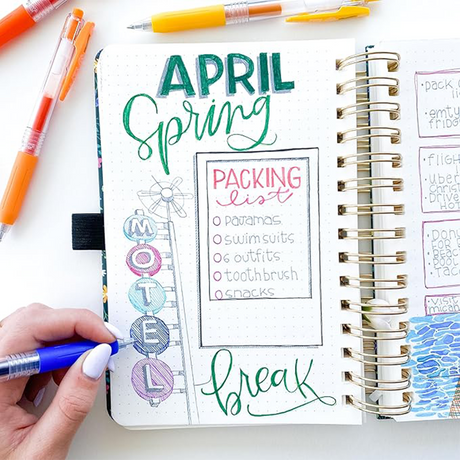 APRIL
Spring
PACKING
list
pajamas
swim suits
6 outfits
toothbrush
snacks
MOTEL
break
pack
emty
fridg
flight
uber
christ
Drive
Donu
for
Beac
Pool
Taco
visit